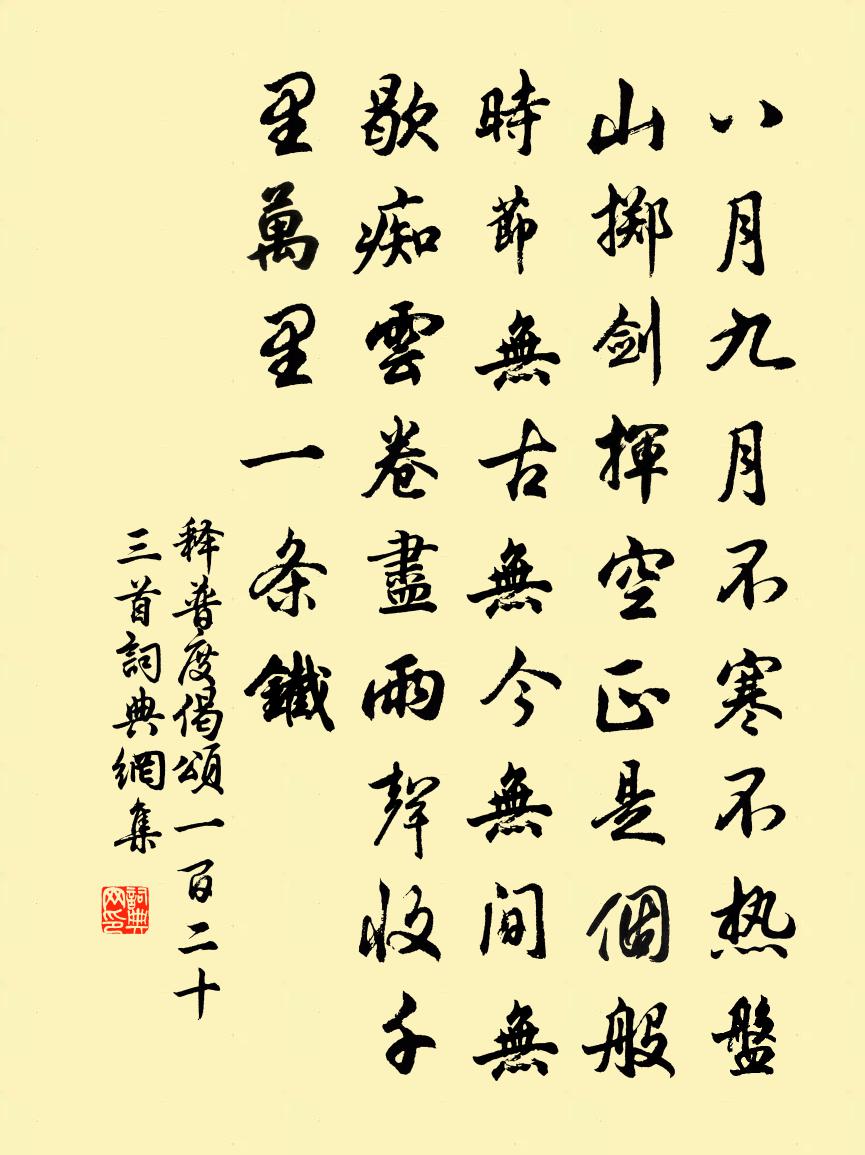 八月九月不寒不热盤
山掷剑揮空正是個般
時節無古無今無间無
歇痴雲卷盡雨聲收千
里萬里一条鐵
释普度偈頌一百二十
三首詞典網集
詞典网印